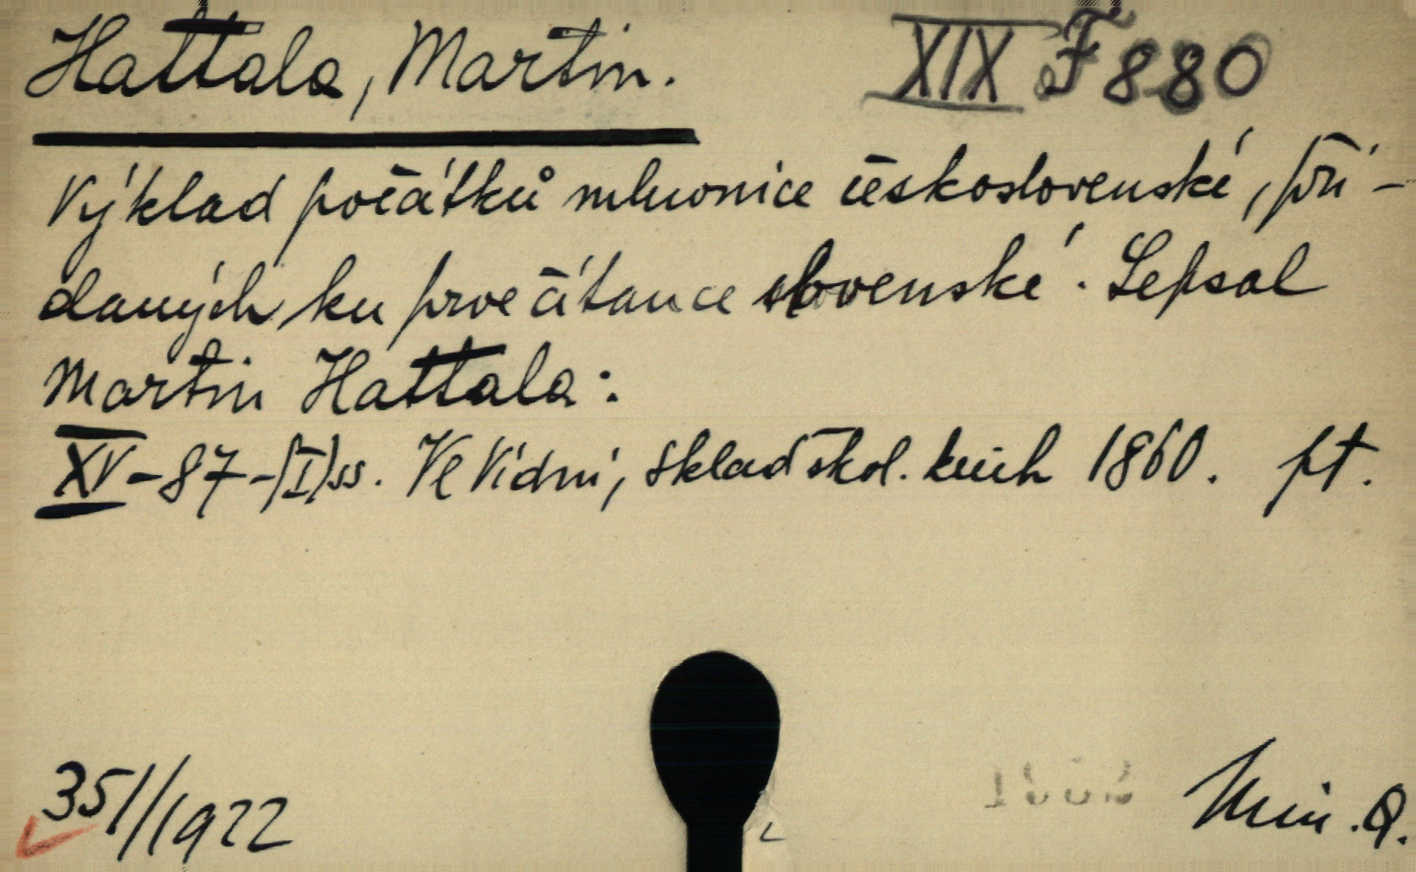 Hattala, Martin. XIX F 880
Výklad počátků mluvnice československé, při-
daných ku prve čítance slovenské. Sepsal
Martin Hattala:
XV-87-(I)ss. Ve Vídni, sklad škol. knih 1860. pt.
351//1922 Min. Q.